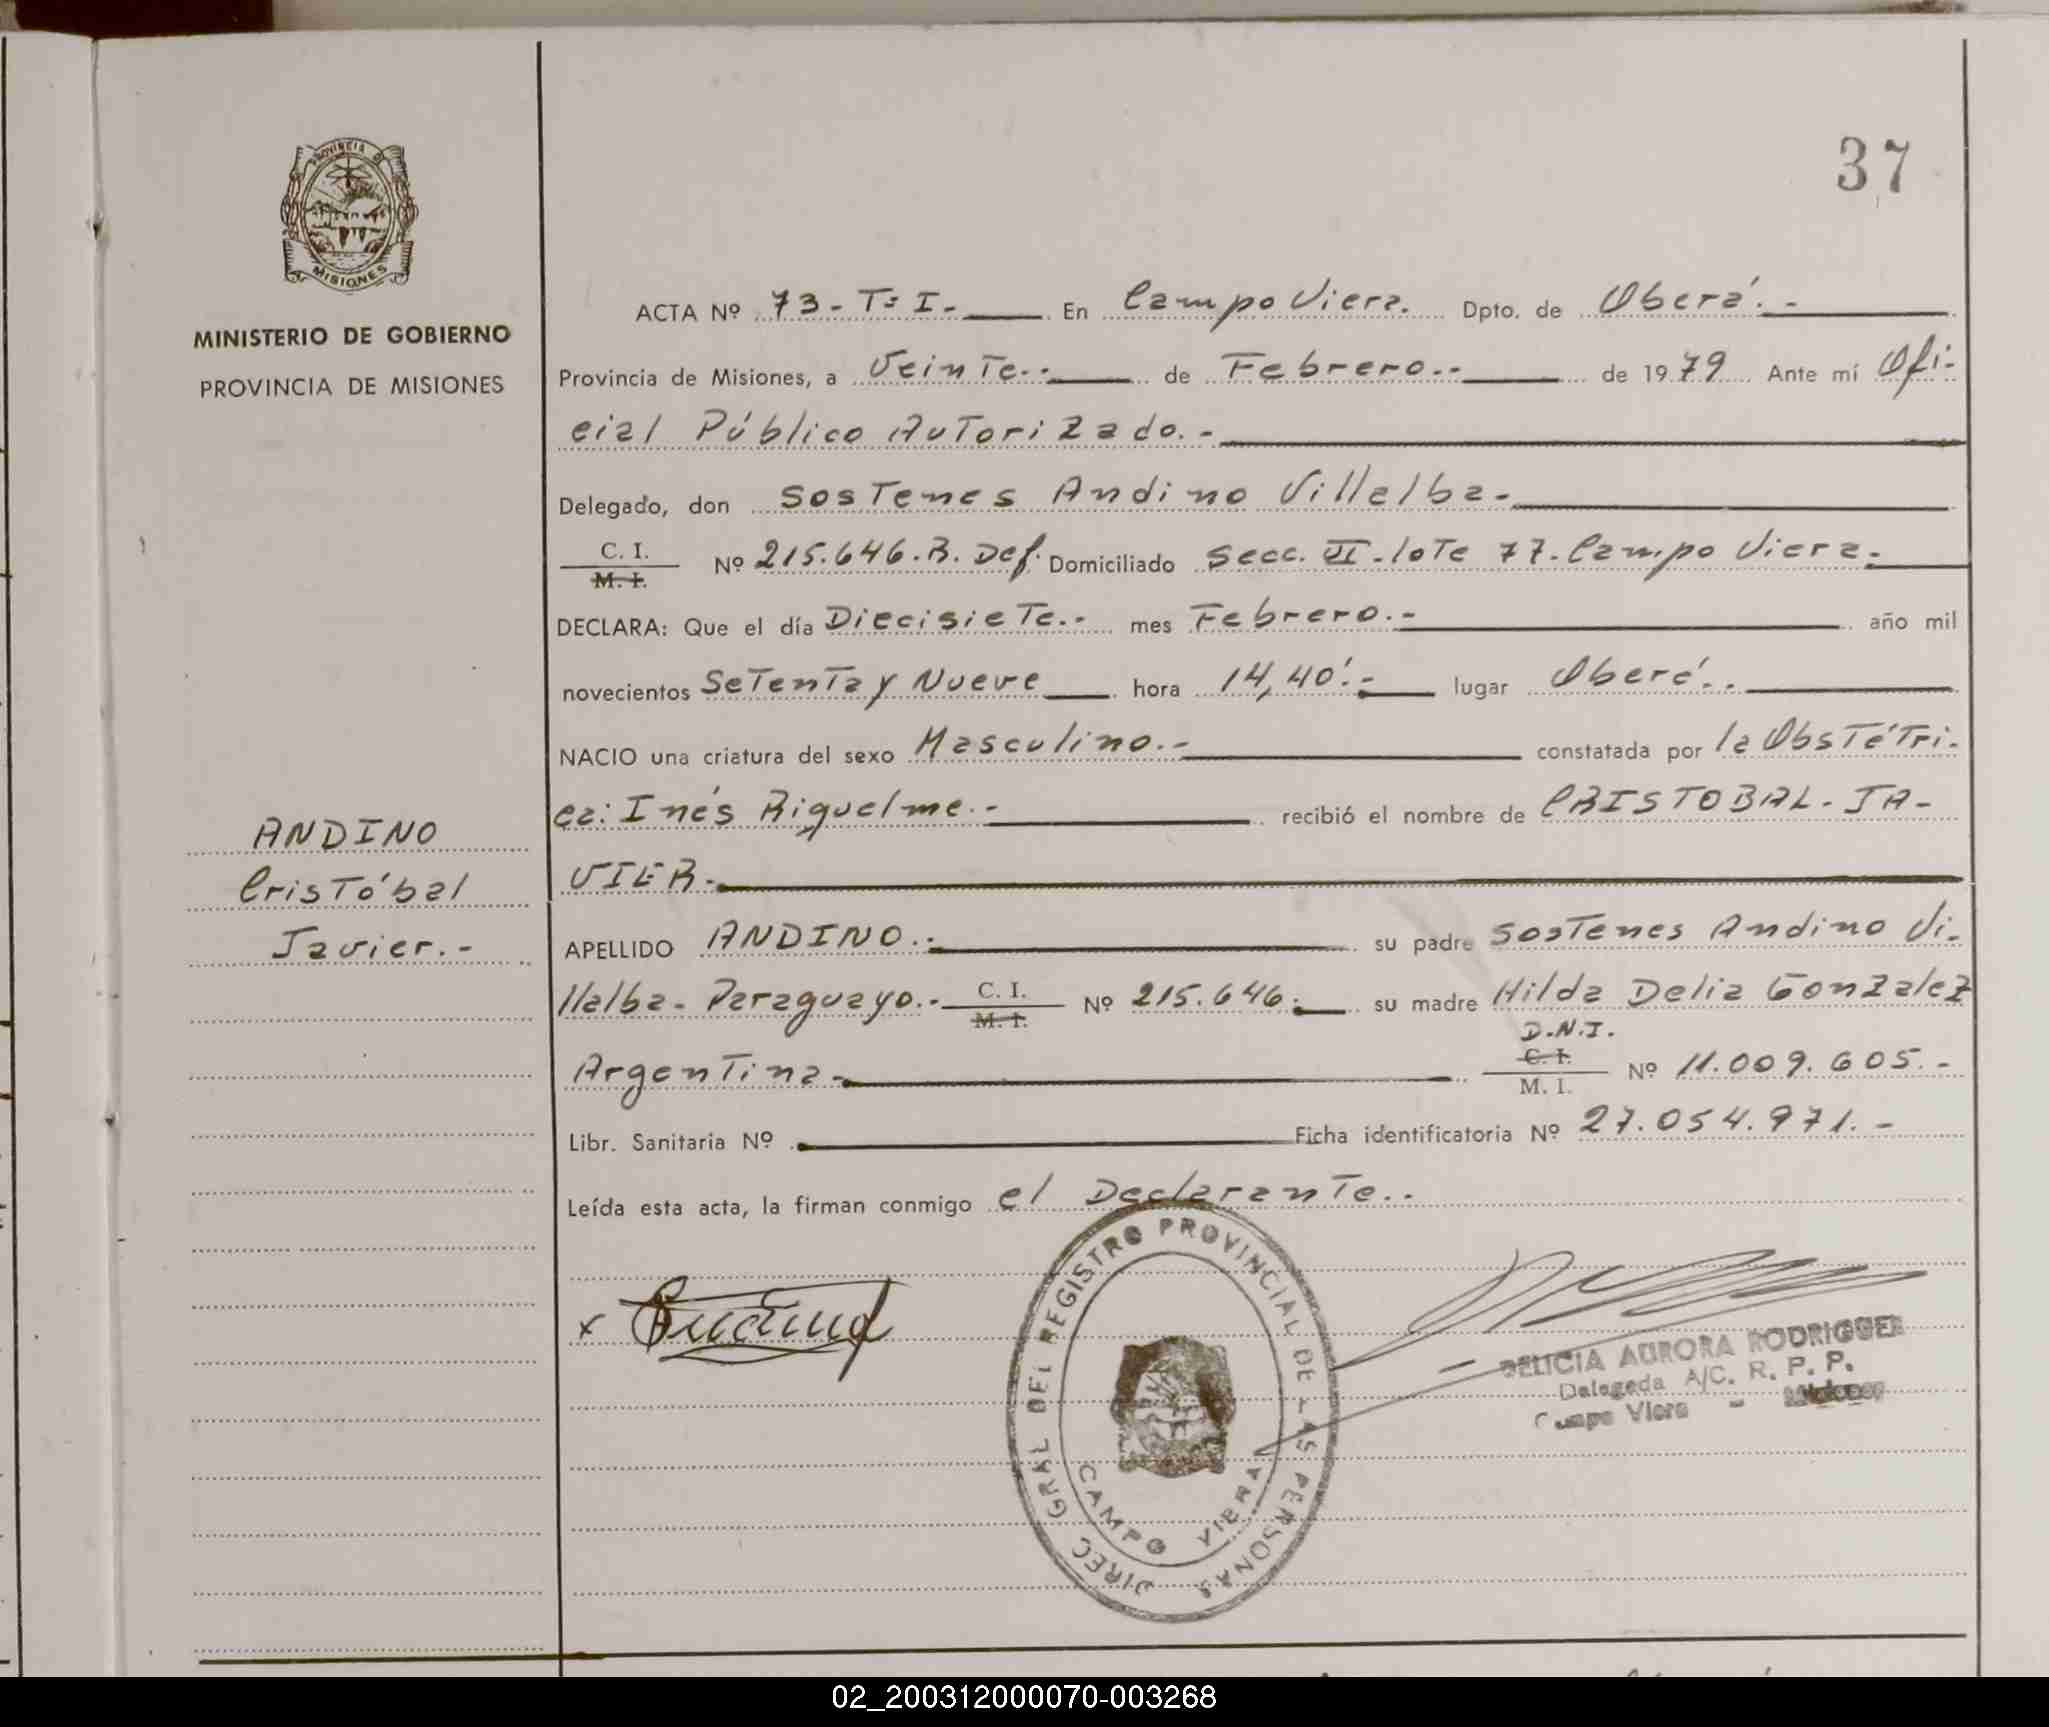 37
PROVINCIA DE
MISIONES
MINISTERIO DE GOBIERNO
PROVINCIA DE MISIONES
ANDINO
Cristóbal
Javier.-
ACTA Nº 73-T=I.- En Campo Viera. Dpto. de Oberá.-
Provincia de Misiones, a Veinte.- de Febrero.- de 1979 Ante mí Ofi-
cial Público Autorizado.-
Delegado, don Sostenes Andino Villalba.-
C. I.
M. I. Nº 215.646.R. Def. Domiciliado Secc. VI-lote 77. Campo Viera.
DECLARA: Que el día Diecisiete.- mes Febrero.- año mil
novecientos Setenta y Nueve hora 14,40'.- lugar Oberá..
NACIO una criatura del sexo Masculino.- constatada por la Obstétri-
ca: Inés Riquelme.- recibió el nombre de CRISTOBAL-JA-
VIER.
APELLIDO ANDINO.- su padre Sostenes Andino Vi-
llalba- Paraguayo.- C. I.
M. I. Nº 215.646. su madre Hilda Delia Gonzalez
Argentina- D.N.I.
C. I.
M. I. Nº 11.009.605.-
Libr. Sanitaria Nº Ficha identificatoria Nº 27.054.971.-
Leída esta acta, la firman conmigo el Declarante..
x
DIREC GRAL DEL REGISTRO PROVINCIAL DE LAS PERSONAS
CAMPO VIERA
DELICIA AURORA RODRIGUEZ
Delegada A/C. R. P. P.
Campo Viera - Misiones
02_200312000070-003268